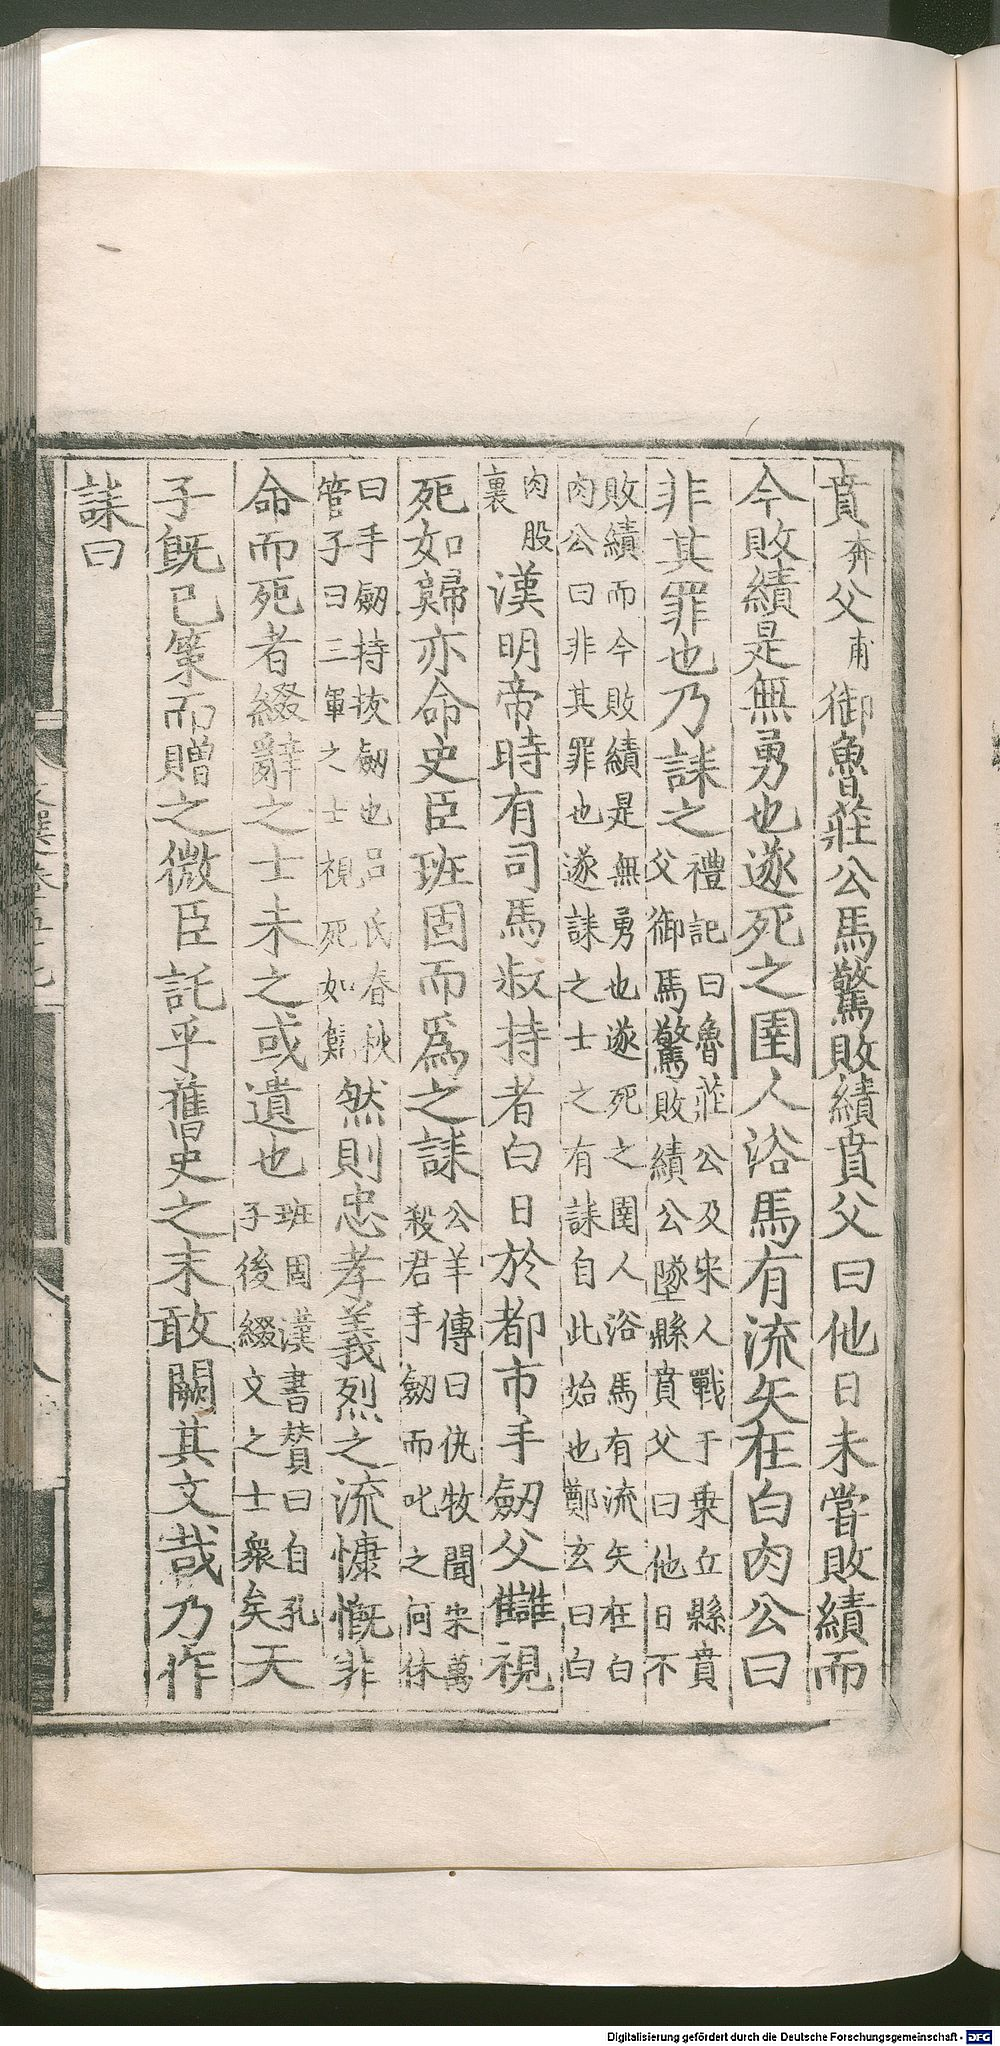 賁奔父甫御魯莊公馬驚敗績賁父曰他日未嘗敗績而
今敗績是無勇也遂死之圉人浴馬有流矢在白肉公曰
非其罪也乃誄之禮記曰魯莊公及宋人戰于乗丘縣賁
父御馬驚敗績公墜縣賁父曰他日不
敗績而今敗績是無勇也遂死之圉人浴馬有流矢在白
肉公曰非其罪也遂誄之士之有誄自此始也鄭玄曰白
肉股
裏漢明帝時有司馬叔持者白日於都市手劒父讎視
死如歸亦命史臣班固而爲之誄公羊傳曰仇牧聞宋萬
殺君手劒而叱之何休
曰手劒持抜劒也吕氏春秋
管子曰三軍之士視死如歸然則忠孝義烈之流慷慨非
命而死者綴辭之士未之或遺也班固漢書賛曰自孔
子後綴文之士衆矣天
子旣已策而贈之微臣託乎舊史之末敢闕其文哉乃作
誄曰
Digitalisierung gefördert durch die Deutsche Forschungsgemeinschaft - DFG